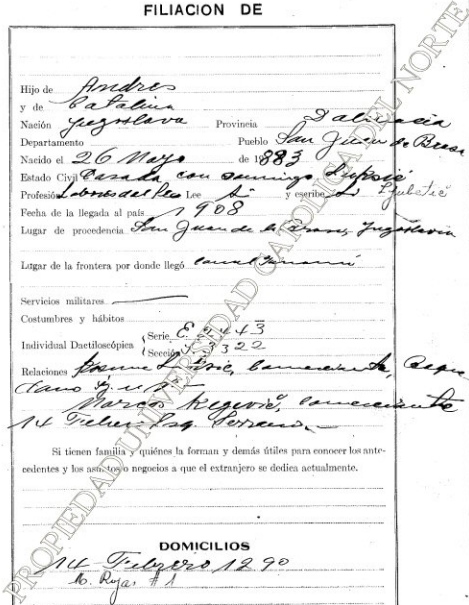 FILIACION DE
Hijo de Andres
y de Catalina
Nación Yugoslava Provincia Dalmacia
Departamento Pueblo San Juan de Brasa
Nacido el 26 Mayo de 1883
Estado Civil Casada con Domingo Luksic
Profesión Labores del Sexo Lee Si y escribe Si Ljubetić
Fecha de la llegada al país 1908
Lugar de procedencia San Juan de la Brasa, Yugoslavia
Lugar de la frontera por donde llegó canal Panamá
Servicios militares
Costumbres y hábitos
Individual Dactiloscópica { Serie E. 2443
Sección 3322
Relaciones comerciante,
Marcos comerciante
14 Febrero Esq. Serrano.-
Si tienen familia y quiénes la forman y demás útiles para conocer los ante-
cedentes y los asuntos o negocios a que el extranjero se dedica actualmente.
DOMICILIOS
14 Febrero 1290
M. Rojas # 1
PROPIEDAD UNIVERSIDAD CATOLICA DEL NORTE